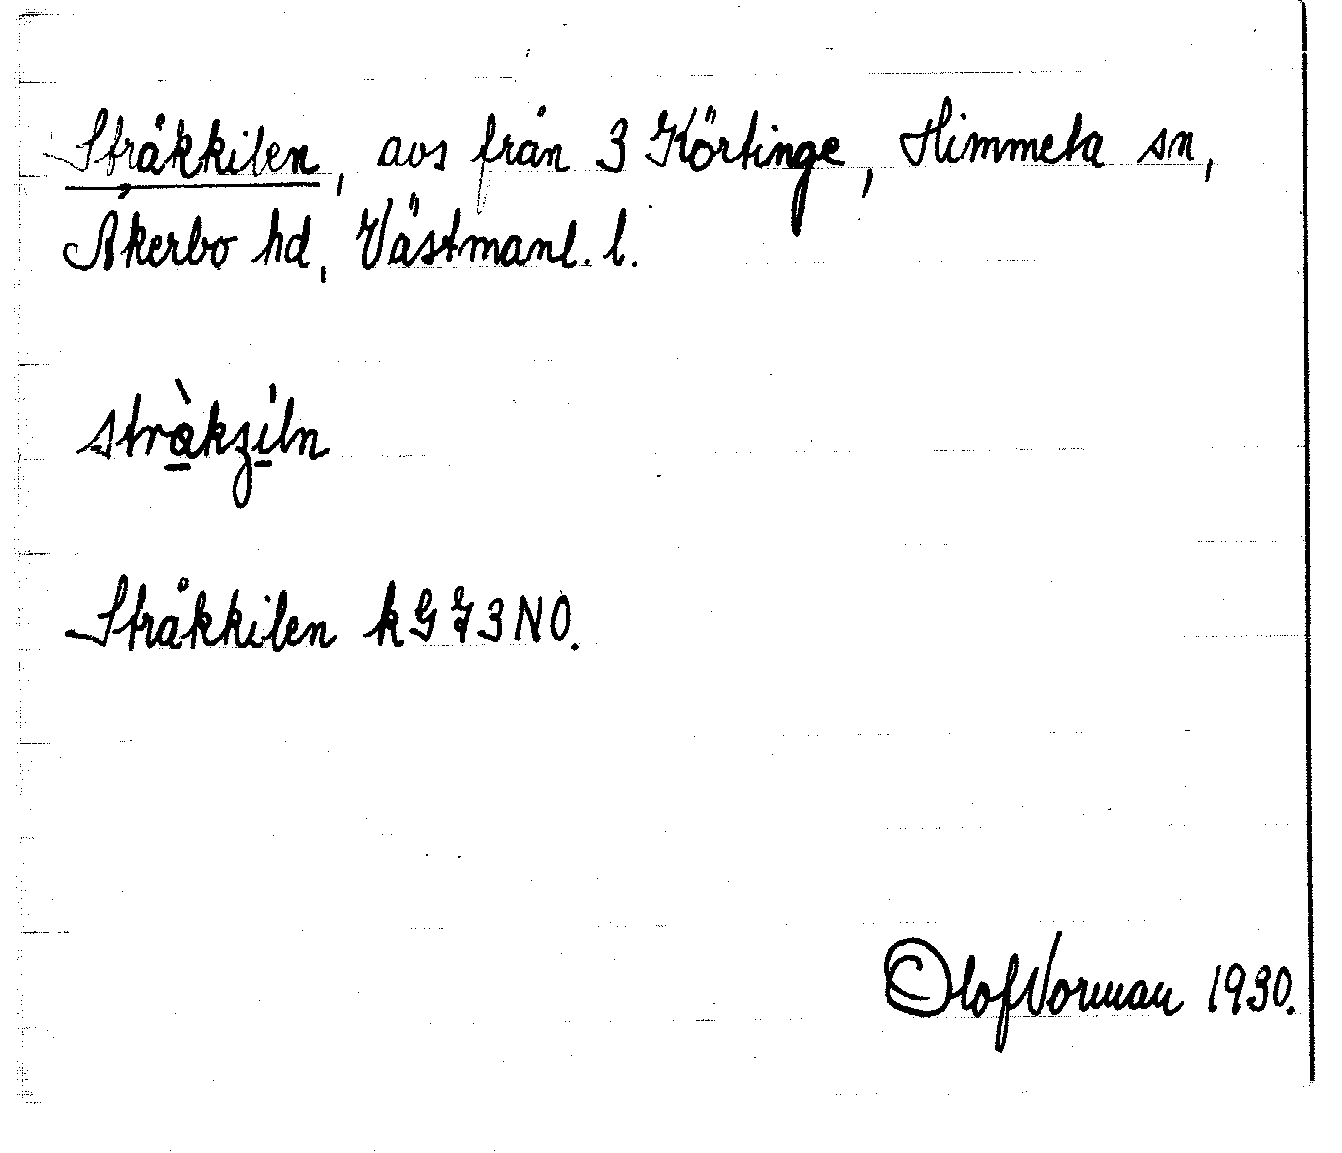 Stråkkilen, avs från 3 Körtinge, Himmeta sn,
Åkerbo hd, Västmanl. l.
stràkzíln
Stråkkilen kG 73 NO.
Olof Norman 1930.